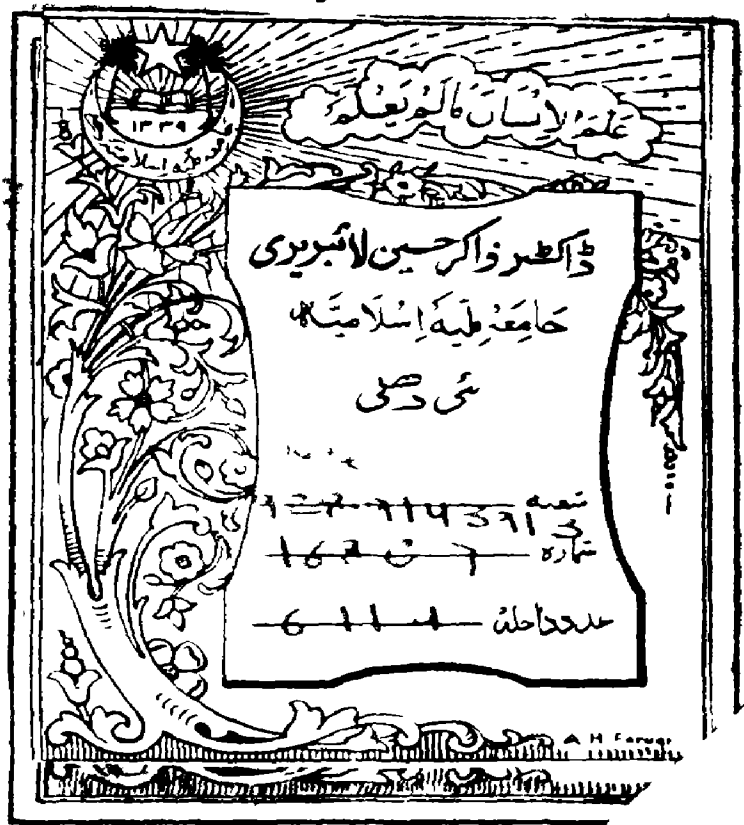 ۱۳۳۹
جامعہ ملیہ اسلامیہ
عَلَّمَ الْاِنْسَانَ مَالَمْ يَعْلَمْ
ڈاکٹر ذاکر حسین لائبریری
جَامِعَہ مِلّیَہ اِسْلَامیَّہ
نئی دھلی
شعبہ
شمارہ
عدد داخلہ 6111
A H Faruqi